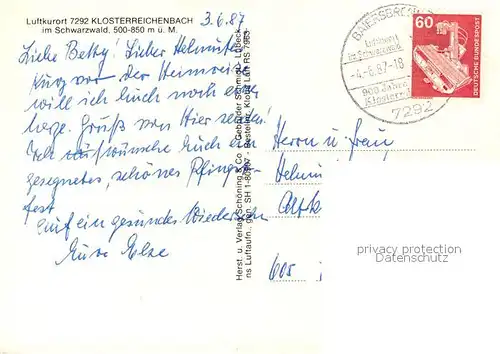 Luftkurort 7292 KLOSTERREICHENBACH
im Schwarzwald, 500-850 m ü. M.
3.6.87
Liebe Betty! Lieber Helmut
Kurz vor der Heimreise
will ich Euch noch einen
Gruß von Hier senden!
Ich wünsche Euch ein
gesegnetes, schönes Pfingst-
fest
Auf ein gesundes Wiedersehen
Eure Else
Herrn u. Frau
Helmut
605
Herst. u. Verlag Schöning & Co + Gebrüder Schmidt, Lübeck
Bestell-Nr. Klost Luft RS 7963
BAIERSBRONN
Luftkurort
im Schwarzwald
-4.-6.87-18
900 Jahre
Kloster
7292
60
DEUTSCHE BUNDESPOST
privacy protection
Datenschutz